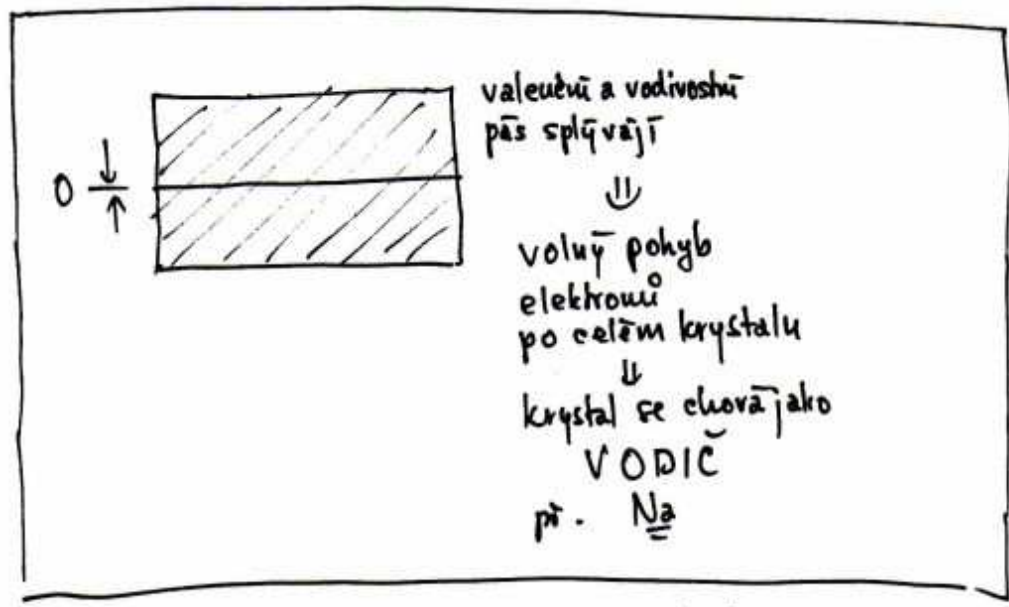 valenční a vodivostní
pás splývají
0
⇓
volný pohyb
elektronů
po celém krystalu
⇓
krystal se chová jako
VODIČ
př. Na